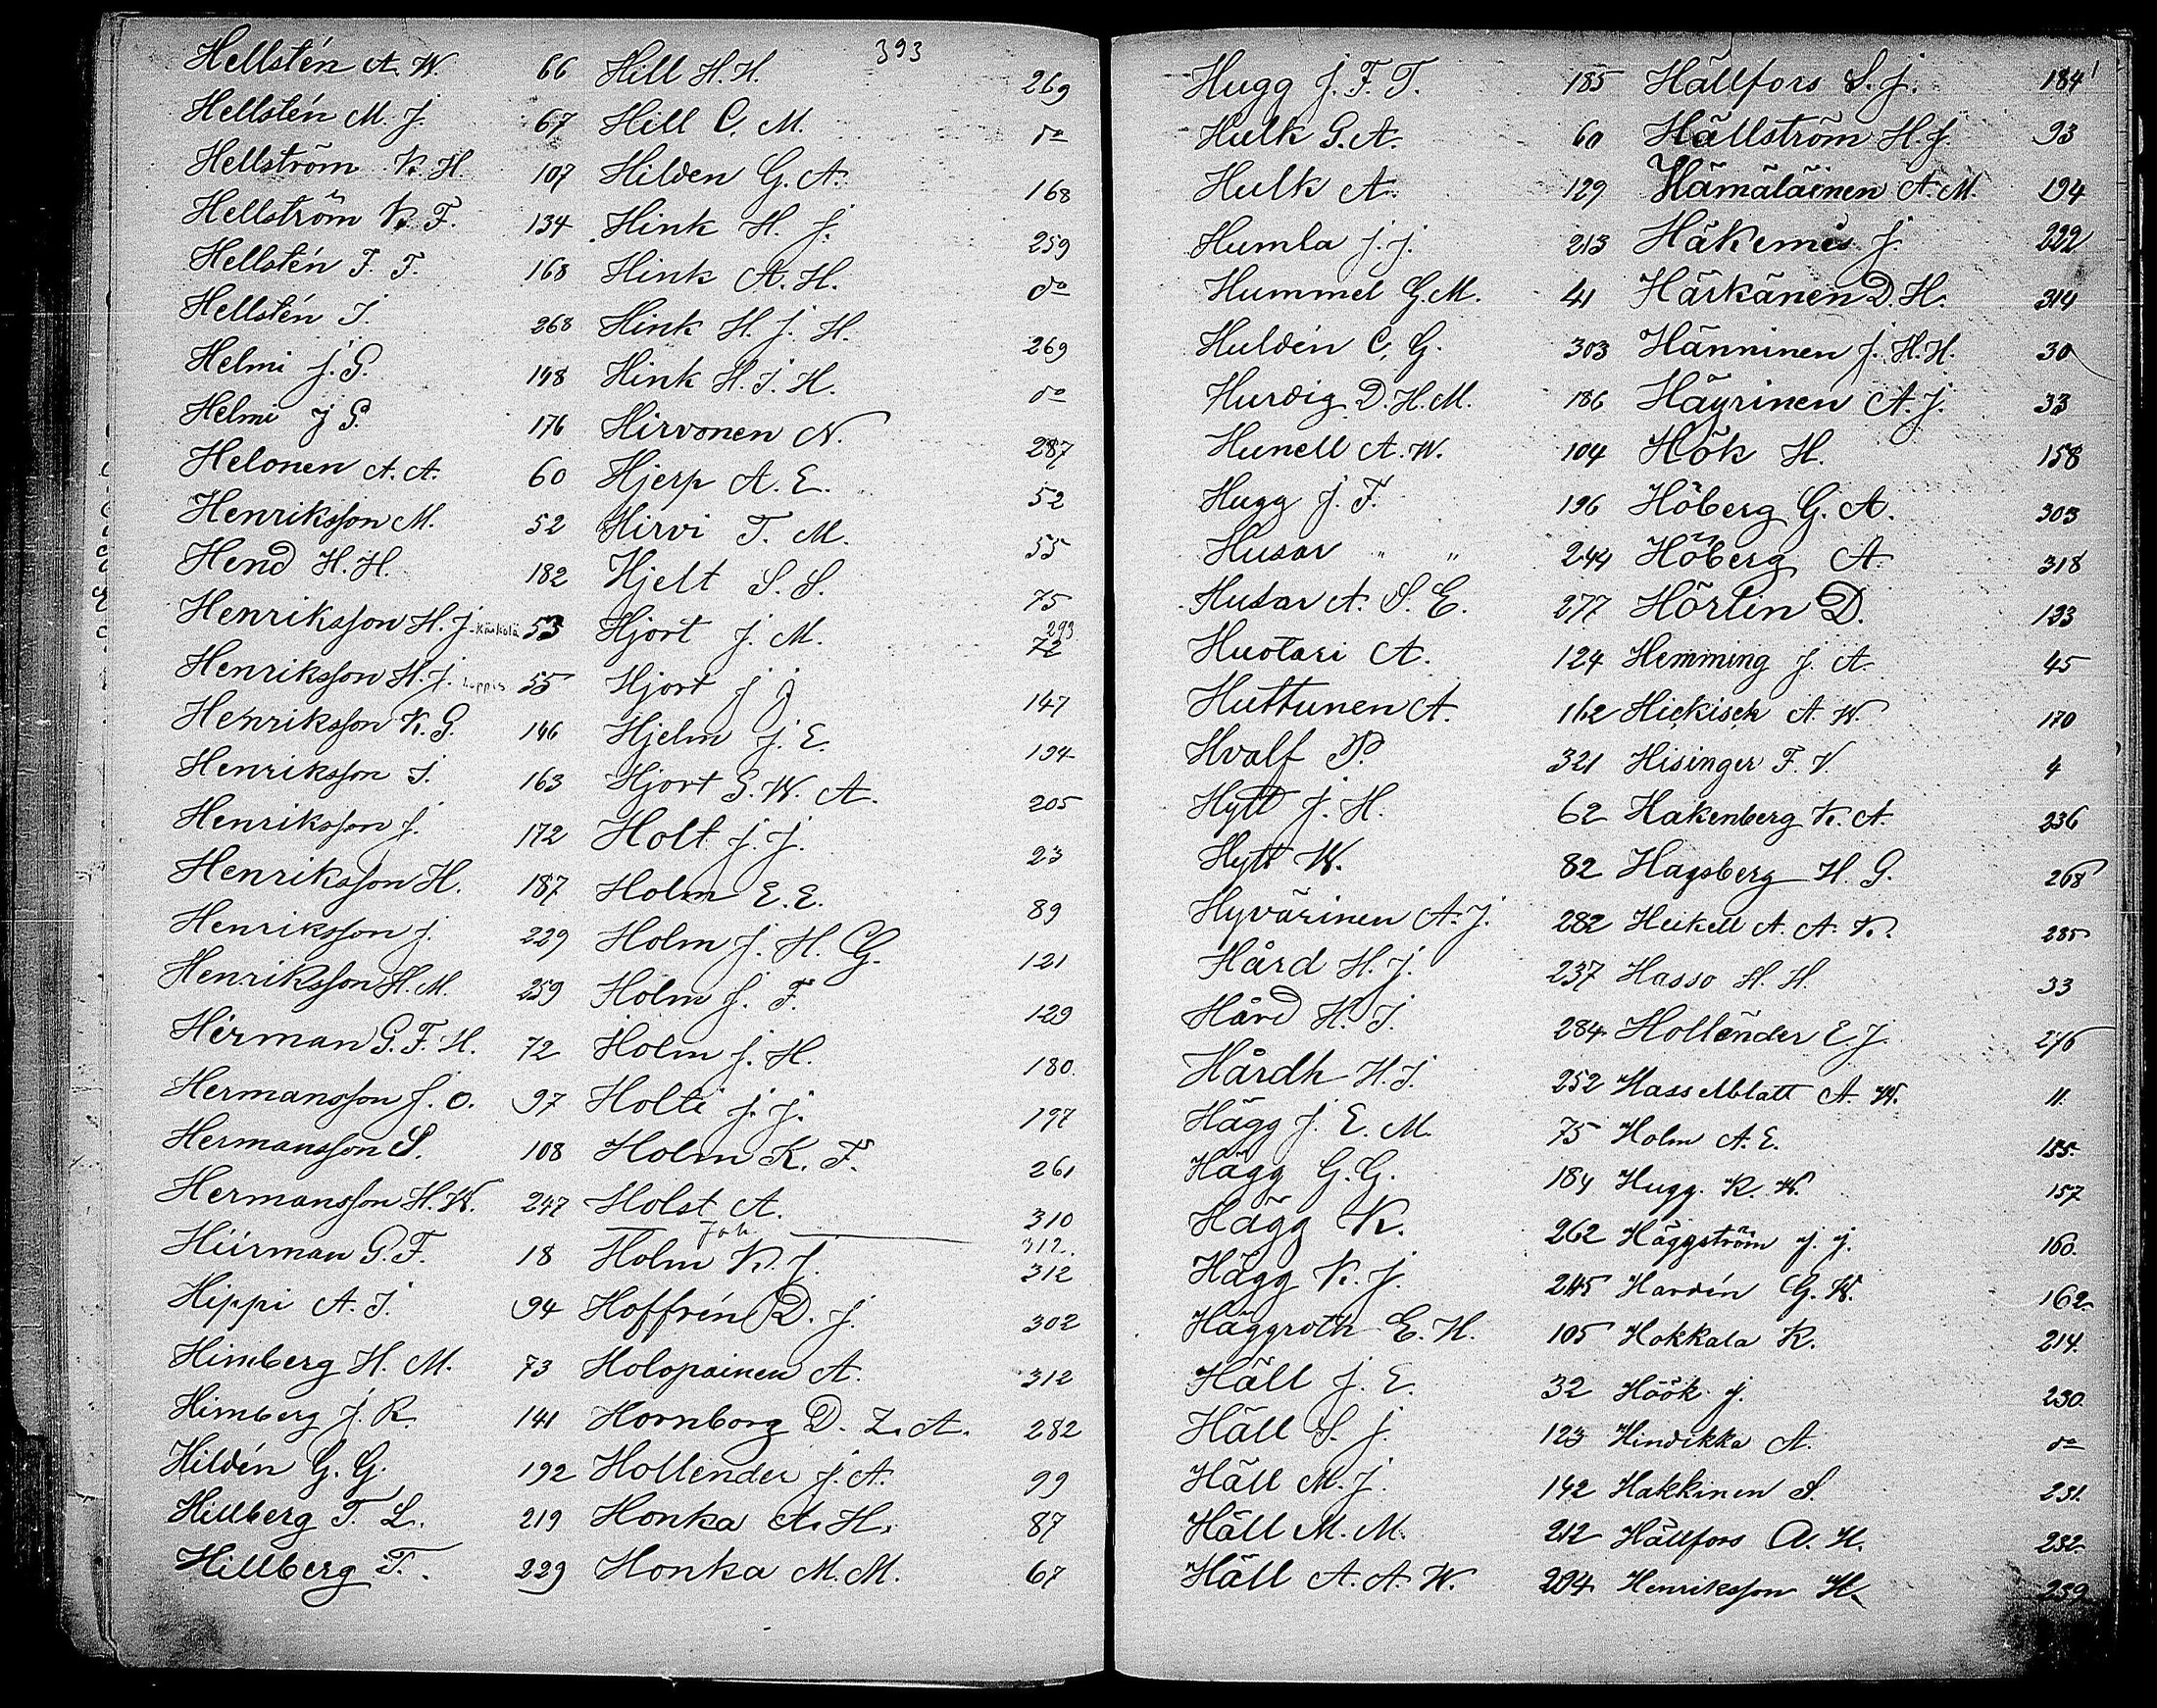 393
Hellstén A. W. 66
Hellstén M. J. 67
Hellström K. H. 107
Hellström K. F. 134
Hellstén F. F. 168
Hellstén J. 268
Helmi J. G. 148
Helmi J G. 176
Helonen A. A. 60
Henriksson M. 52
Hend H. H. 182
Henriksson H. J. Kärkölä 53
Henriksson H. J. Loppis 55
Henriksson K. G. 146
Henriksson J. 163
Henriksson J. 172
Henriksson H. 187
Henriksson J. 229
Henriksson H. M. 259
Herman G. F. H. 72
Hermansson J. O. 97
Hermansson S. 108
Hermansson H. W. 247
Hiirman G. F. 18
Hippi A. J. 94
Himberg H. M. 73
Himberg J. R. 141
Hildén G. G. 192
Hillberg T. L. 219
Hillberg T. 229
Hill H. H. 269
Hill C. M. do
Hilden G. A. 168
Hink H. J. 259
Hink A. H. do
Hink H. J. H. 269
Hink H. J. H. do
Hirvonen N. 287
Hjerp A. E. 52
Hirvi T. M. 55
Hjelt S. S. 75
293
Hjort J. M. 72
Hjort J J 147
Hjelm J. E. 194
Hjort G. W. A. 205
Holt J. J. 23
Holm E. E. 89
Holm J. H. G. 121
Holm J. F. 129
Holm J. H. 180
Holti J. J. 197
Holm K. F. 261
Holst A. 310
Joh. 312
Holm K. J. 312
Hoffrén D. J. 302
Holopainen A. 312
Hornborg D. Z. A. 282
Hollender J. A. 99
Honka A. H. 87
Honka M. M. 67
Hugg J. F. T. 185
Hulk G. A. 60
Hulk A. 129
Humla J. J. 213
Hummel G. M. 41
Huldén C. G. 303
Hurdig D. H. M. 186
Hunell A. W. 104
Hugg J. F. 196
Husar " " 244
Husar A. S. E. 277
Huotari A. 124
Huttunen A. 162
Hvalf P. 321
Hytt J. H. 62
Hytt W. 82
Hyvärinen A. J. 282
Hård H. J. 237
Hård H. J. 284
Hårdh H. J. 252
Hägg J. E. M. 75
Hägg G. G. 184
Hägg K. 262
Hägg K. J. 245
Häggroth E. H. 105
Häll J. E. 32
Häll S. J. 123
Häll M. J. 142
Häll M. M. 212
Häll A. A. W. 294
Hällfors S. J. 184
Hällström H. J. 93
Hämäläinen A. M. 194
Häkemies J. 222
Härkänen D. H. 314
Hänninen J. H. H. 30
Häyrinen A. J. 33
Hök H. 158
Höberg G. A. 303
Höberg A. 318
Hörlin D. 123
Hemming J. A. 45
Hickisch A. W. 170
Hisinger F. V. 4
Hakenberg K. A. 236
Hagsberg H. G. 268
Heikell A. A. K. 285
Hasso H. H. 33
Hollender E. J. 276
Hasselblatt A. W. 11.
Holm A. E. 155
Hugg. K. W. 157
Häggström J. J. 160.
Hardén G. W. 162
Hokkala K. 214.
Höök J. 230.
Hindikka A. do
Hakkinen S. 231.
Hällfors A. H. 232.
Henriksson H. 239